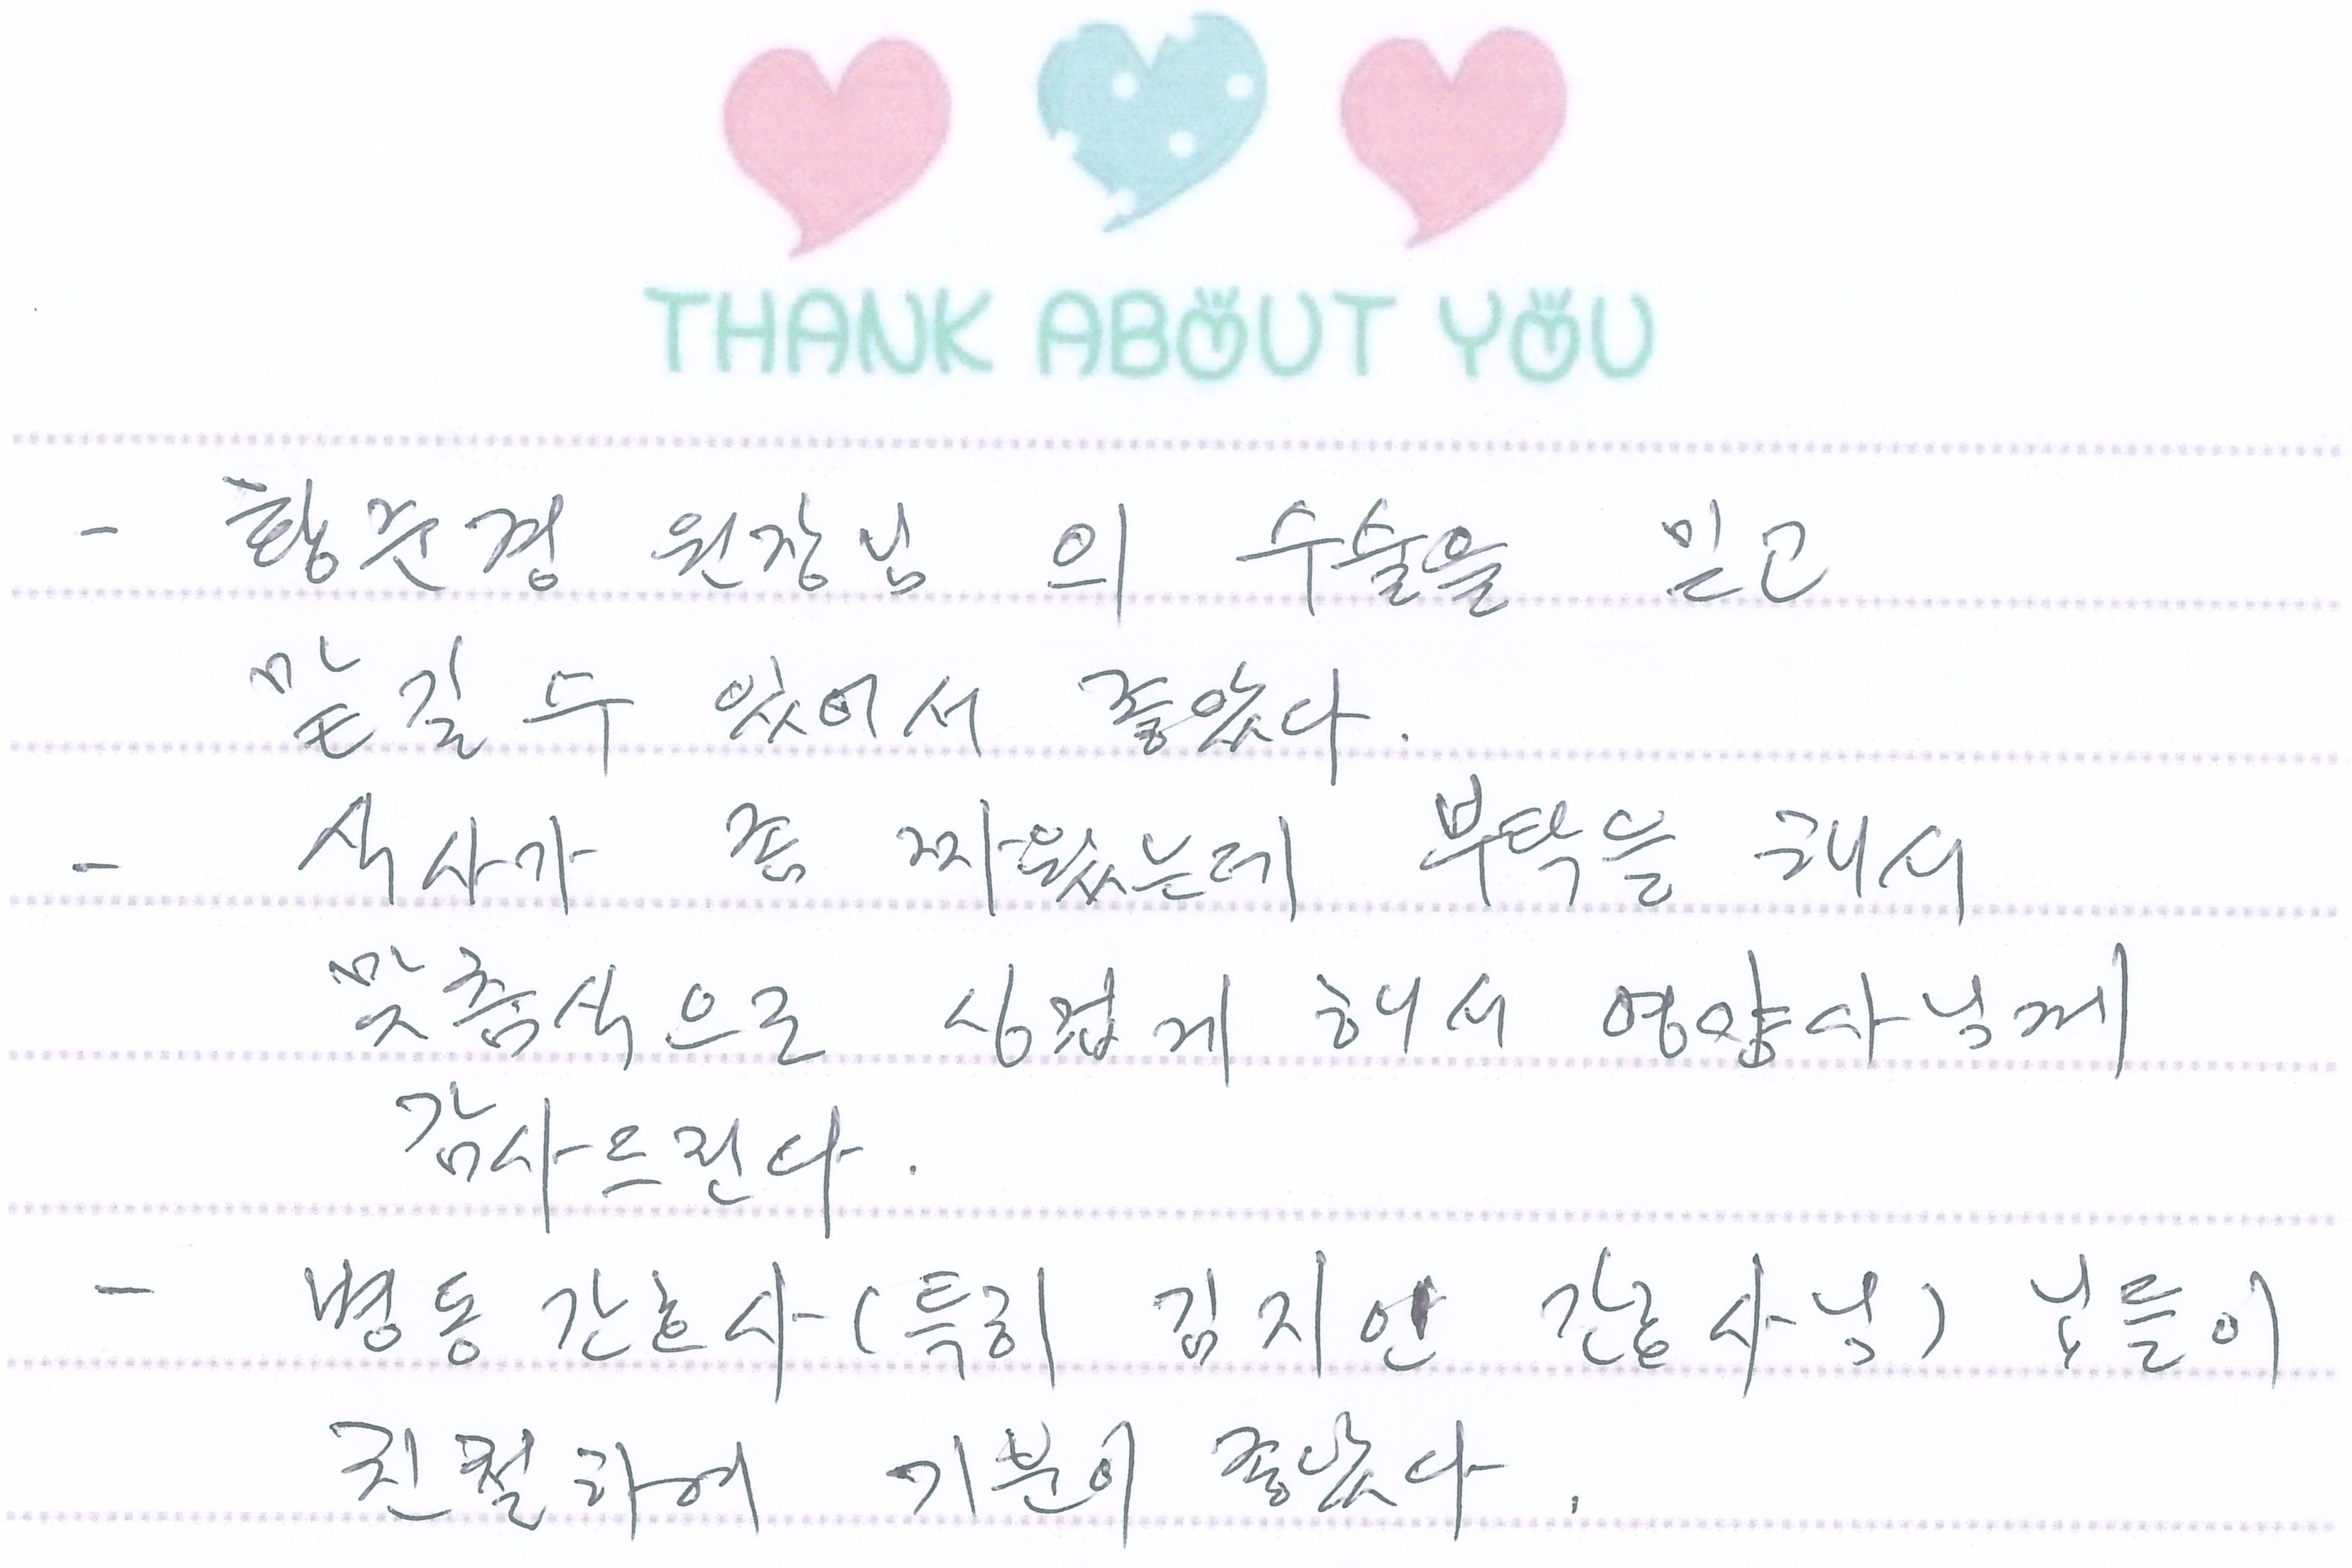 THANK ABOUT YOU
- 황문경 원장님 의 수술을 믿고
맡길 수 있어서 좋았다.
- 식사가 좀 짜웠는데 부탁을 해서
맞춤식으로 싱겁게 해서 영양사님께
감사드린다.
- 병동 간호사(특히 김지안 간호사님) 님들이
친절하여 기분이 좋았다.